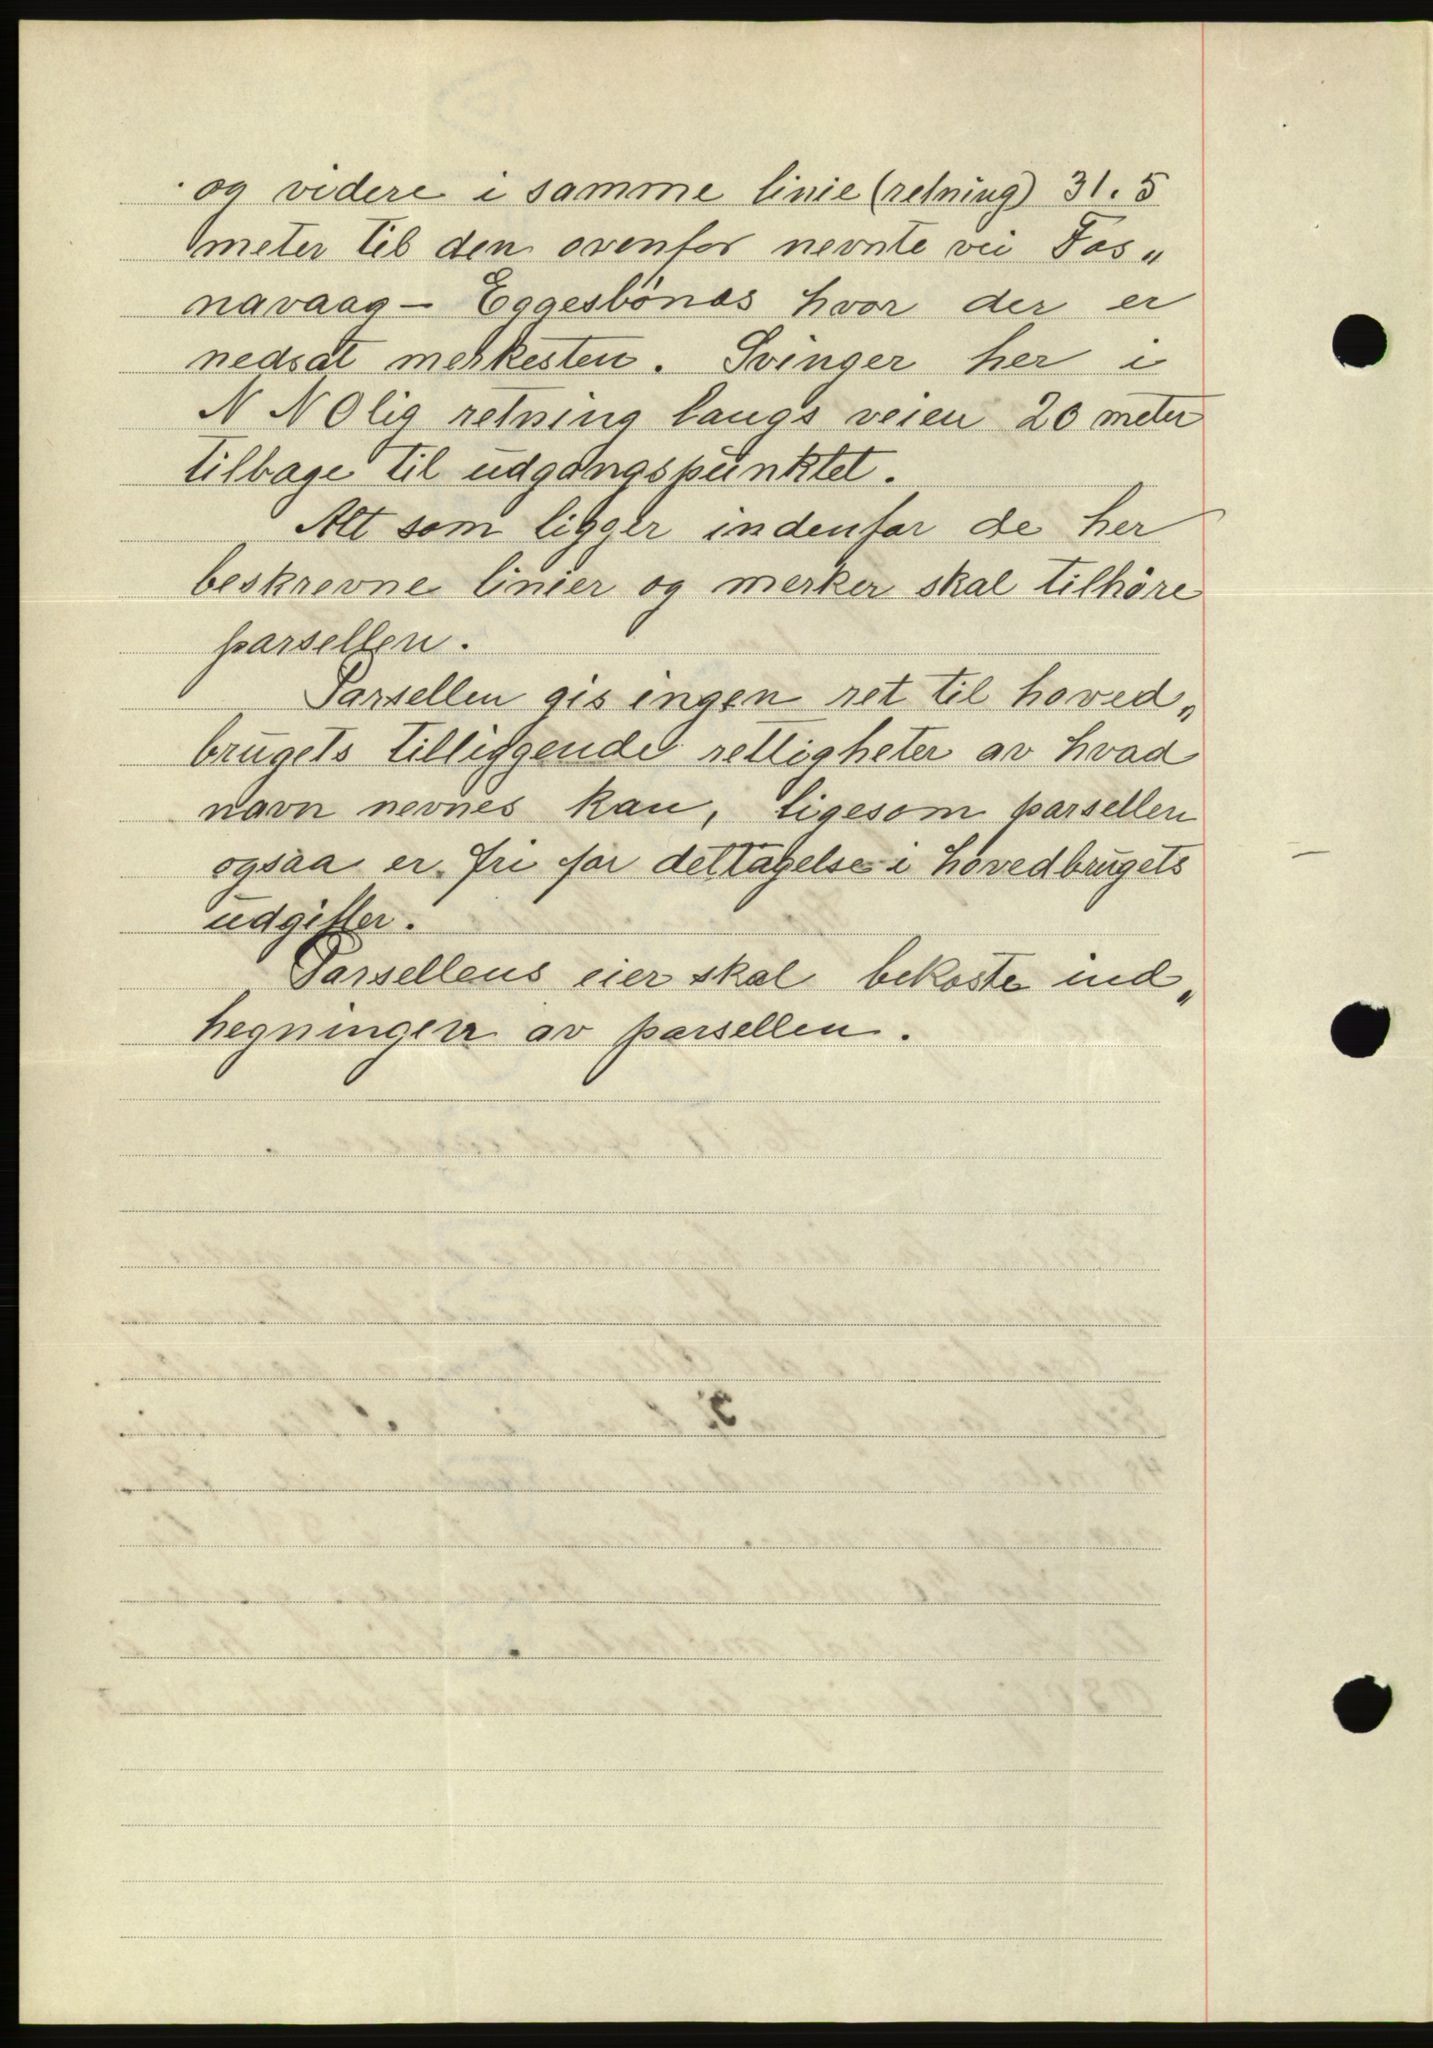 og videre i samme linie (retning) 31.5
meter til den ovenfor nevnte vei Fos„
navaag - Eggesbönes hvor der er
nedsat merkesten. Svinger her i
N N Olig retning langs veien 20 meter
tilbage til udgangspunktet.
Alt som ligger indenfor de her
beskrevne linier og merker skal tilhöre
parsellen.
Parsellen gis ingen ret til hoved„
brugets tilliggende rettigheter av hvad
navn nevnes kan, ligesom parsellen
ogsaa er fri for dettagelse i hovedbrugets
udgifter.
Parsellens eier skal bekoste ind„
hegningen av parsellen.